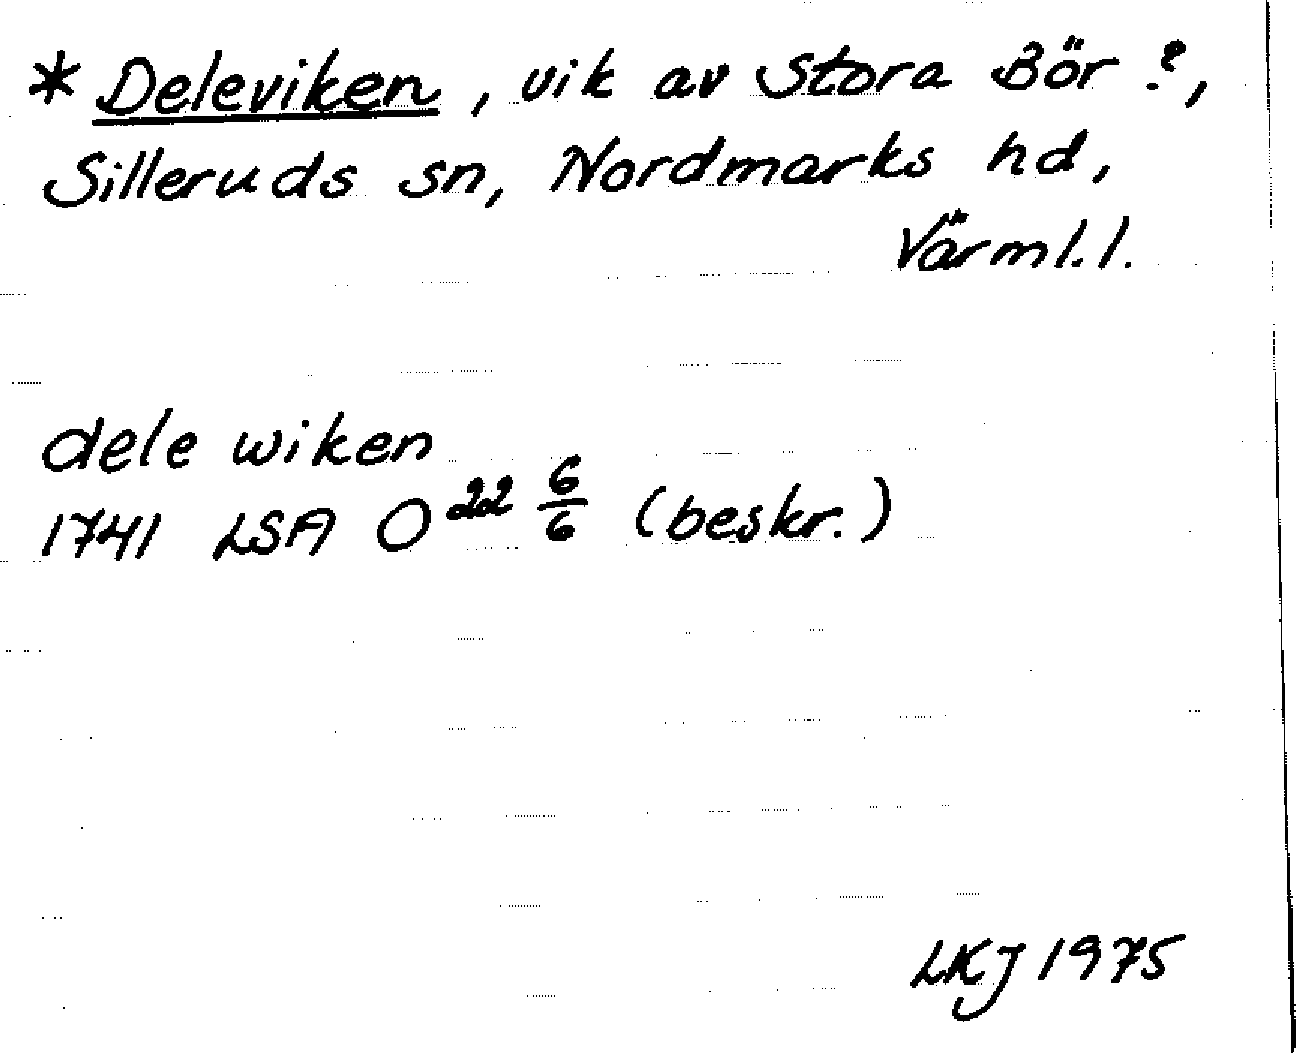 * Deleviken, vik av Stora Bör ?,
Silleruds sn, Nordmarks hd,
Värml.l.
dele wiken
1741 LSA O 22 6/6 (beskr.)
LKJ 1975